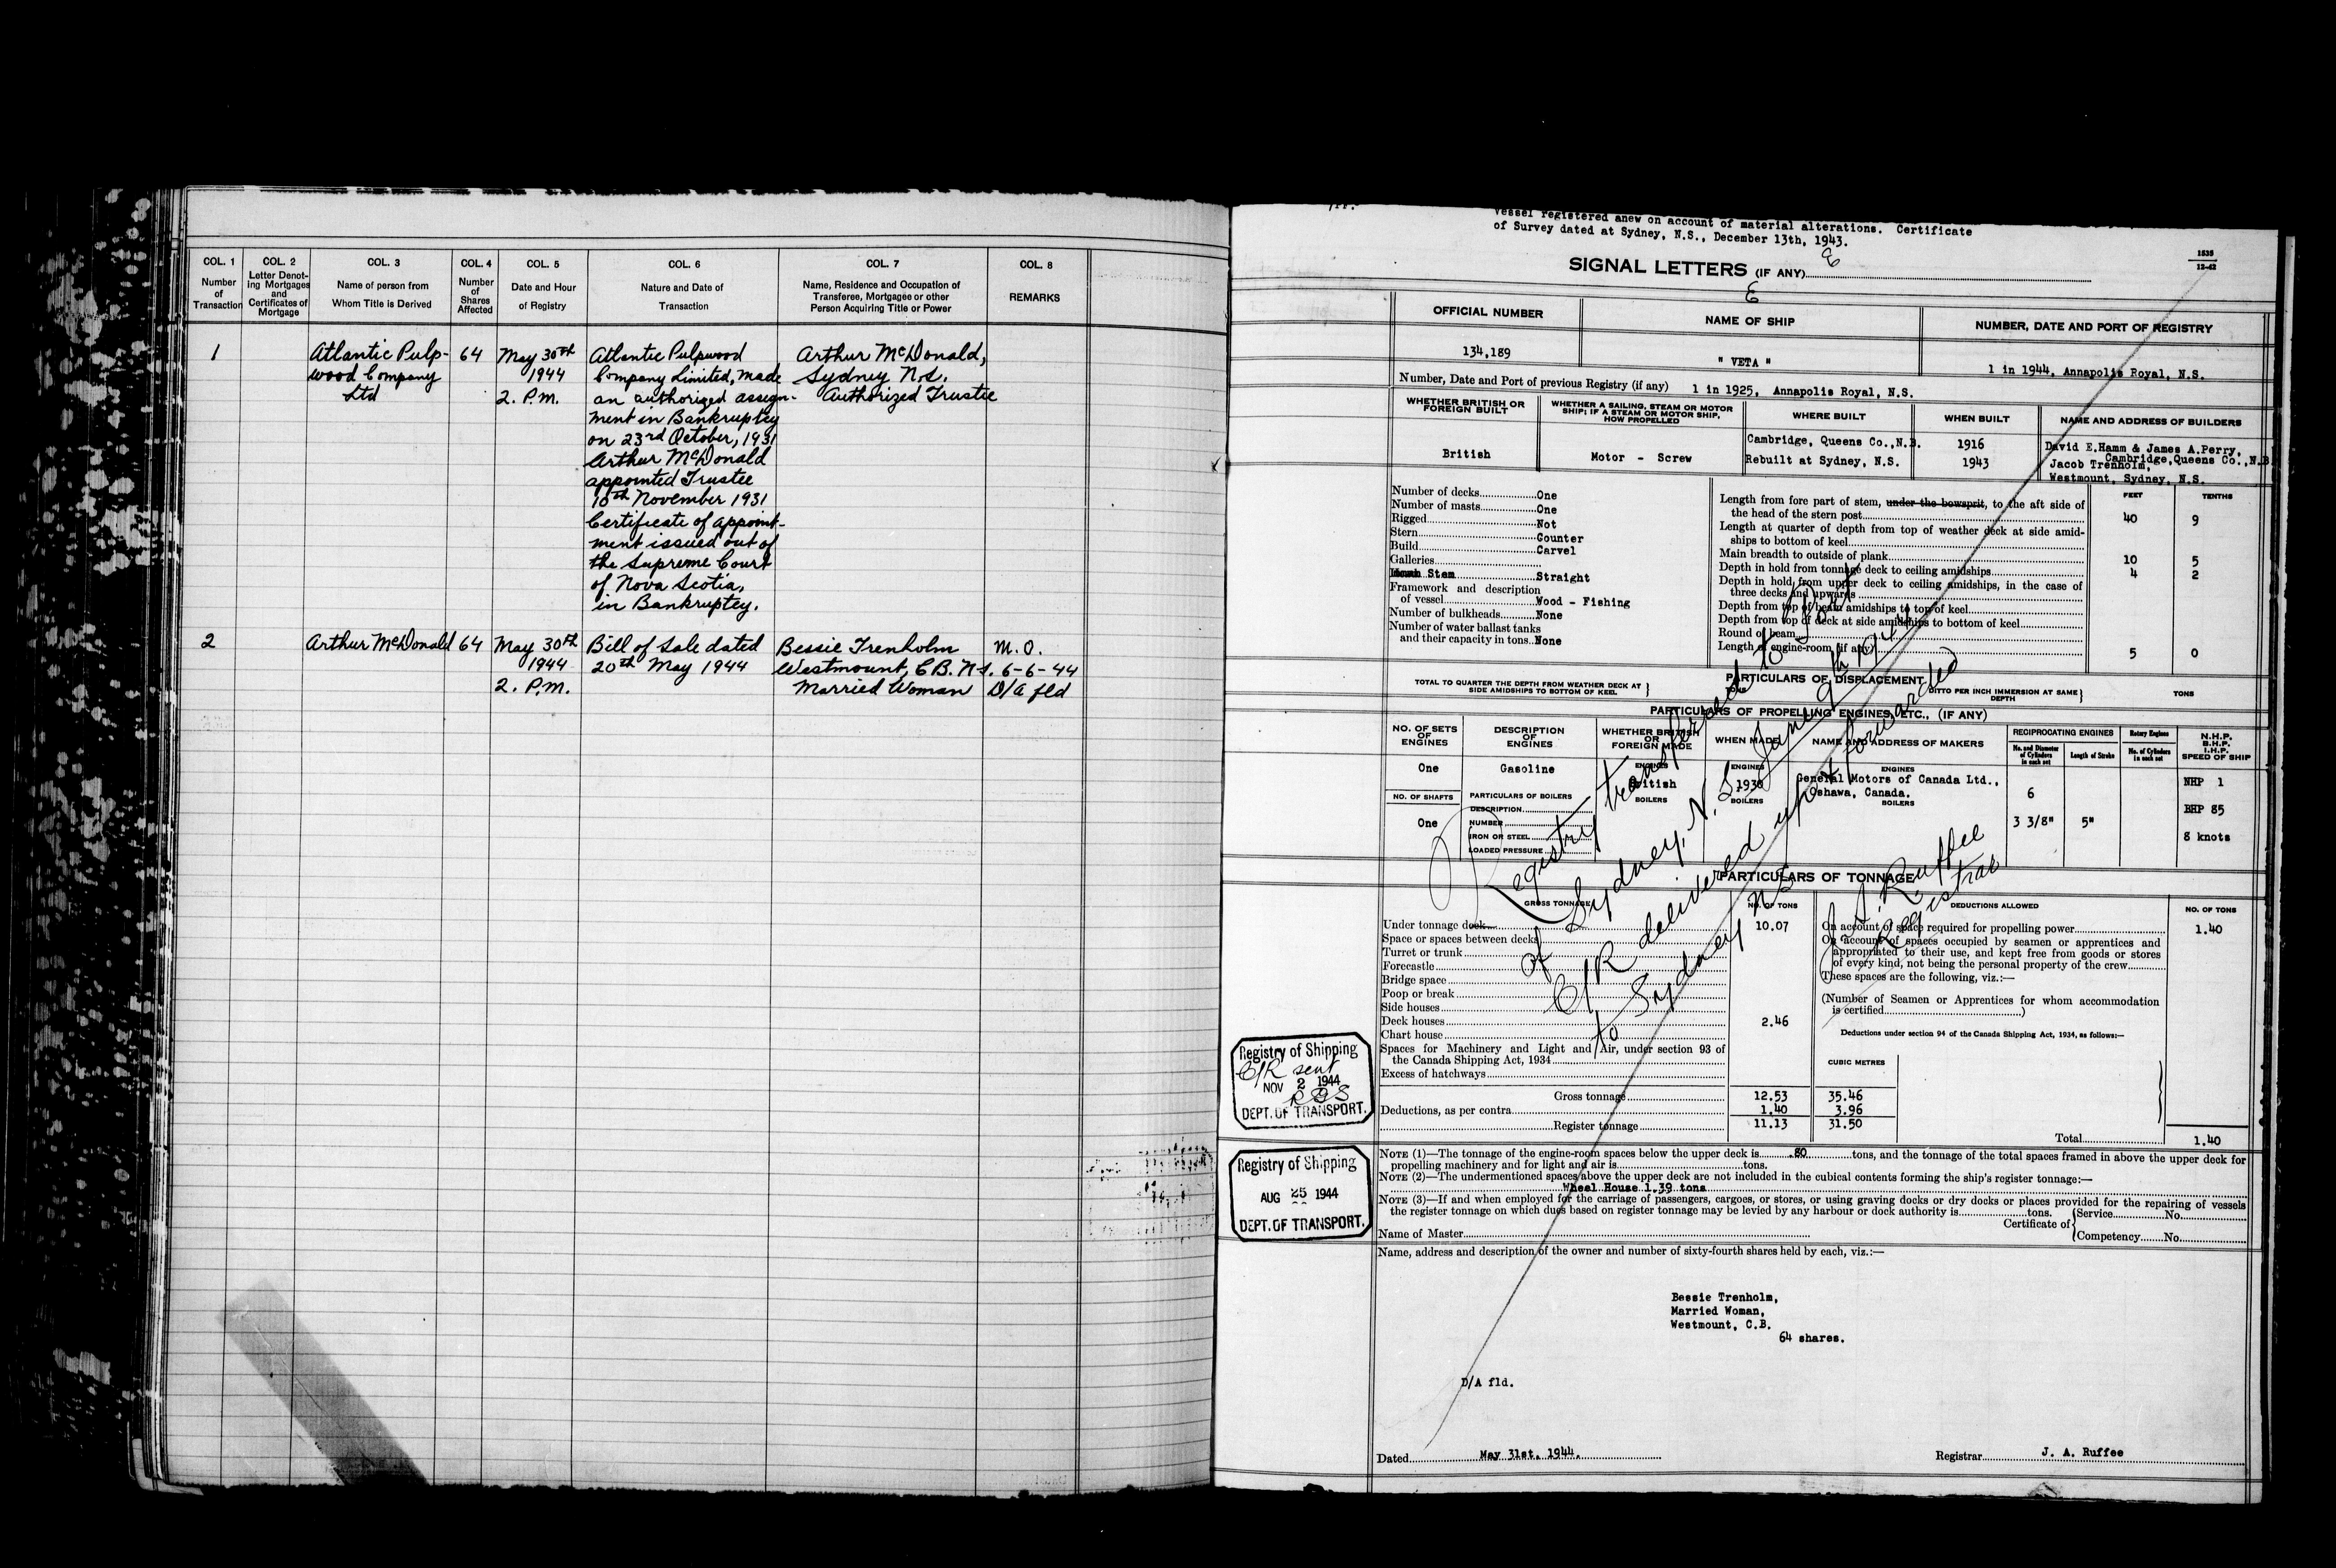 COL. 1
Number
of
Transaction
COL. 2
Letter Denot-
ing Mortgages
and
Certificates of
Mortgage
COL. 3
Name of person from
Whom Title is Derived
COL. 4
Number
of
Shares
Affected
COL. 5
Date and Hour
of Registry
COL. 6
Nature and Date of
Transaction
COL. 7
Name, Residence and Occupation of
Transferee, Mortgagee or other
Person Acquiring Title or Power
COL. 8
REMARKS
1
Atlantic Pulp-
wood Company
Ltd
64
May 30th
1944
2. P.M.
Atlantic Pulpwood
Company Limited, made
an authorized assign-
ment in Bankruptcy
on 23rd October, 1931
Arthur McDonald
appointed Trustee
10th November 1931
Certificate of appoint-
ment issued out of
the Supreme Court
of Nova Scotia,
in Bankruptcy.
Arthur McDonald,
Sydney N.S.
Authorized Trustee
2
Arthur McDonald
64
May 30th
1944
2. P.M.
Bill of Sale dated
20th May 1944
Bessie Trenholm
Westmount, C.B. N.S.
Married Woman
M.O.
6-6-44
D/A fld
Vessel registered anew on account of material alterations. Certificate
of Survey dated at Sydney, N.S., December 13th, 1943.
1535
12-42
SIGNAL LETTERS (IF ANY)
OFFICIAL NUMBER
NAME OF SHIP
NUMBER, DATE AND PORT OF REGISTRY
134,189
" VETA "
1 in 1944, Annapolis Royal, N.S.
Number, Date and Port of previous Registry (if any) 1 in 1925, Annapolis Royal, N.S.
WHETHER BRITISH OR
FOREIGN BUILT
WHETHER A SAILING, STEAM OR MOTOR
SHIP; IF A STEAM OR MOTOR SHIP,
HOW PROPELLED
WHERE BUILT
WHEN BUILT
NAME AND ADDRESS OF BUILDERS
British
Motor - Screw
Cambridge, Queens Co.,N.B.
Rebuilt at Sydney, N.S.
1916
1943
David E.Hamm & James A.Perry,
Cambridge,Queens Co.,N.B
Jacob Trenholm,
Westmount, Sydney, N.S.
Number of decks One
Number of masts One
Rigged Not
Stern Counter
Build Carvel
Galleries
Stem Straight
Framework and description
of vessel Wood - Fishing
Number of bulkheads None
Number of water ballast tanks
and their capacity in tons None
FEET
TENTHS
Length from fore part of stem, under the bowsprit, to the aft side of
the head of the stern post 40 9
Length at quarter of depth from top of weather deck at side amid-
ships to bottom of keel
Main breadth to outside of plank 10 5
Depth in hold from tonnage deck to ceiling amidships 4 2
Depth in hold from upper deck to ceiling amidships, in the case of
three decks and upwards
Depth from top of beam amidships to top of keel
Depth from top of deck at side amidships to bottom of keel
Round of beam
Length of engine-room (if any) 5 0
PARTICULARS OF DISPLACEMENT
TOTAL TO QUARTER THE DEPTH FROM WEATHER DECK AT
SIDE AMIDSHIPS TO BOTTOM OF KEEL
TONS
DITTO PER INCH IMMERSION AT SAME
DEPTH
TONS
PARTICULARS OF PROPELLING ENGINES, ETC., (IF ANY)
NO. OF SETS
OF
ENGINES
DESCRIPTION
OF
ENGINES
WHETHER BRITISH
OR
FOREIGN MADE
WHEN MADE
NAME AND ADDRESS OF MAKERS
RECIPROCATING ENGINES
No. and Diameter
of Cylinders
in each set
Length of Stroke
Rotary Engines
No. of Cylinders
in each set
N.H.P.
B.H.P.
I.H.P.
SPEED OF SHIP
One
Gasoline
ENGINES
British
BOILERS
ENGINES
1930
BOILERS
ENGINES
General Motors of Canada Ltd.,
Oshawa, Canada.
BOILERS
6
3 3/8"
5"
NHP 1
BHP 85
8 knots
NO. OF SHAFTS
One
PARTICULARS OF BOILERS
DESCRIPTION
NUMBER
IRON OR STEEL
LOADED PRESSURE
Registry transferred to Port
of Sydney, N.S. June 9th 1944
C/R delivered up & forwarded
to Sydney N.S.
J. A. Ruffee
Registrar
PARTICULARS OF TONNAGE
GROSS TONNAGE
NO. OF TONS
DEDUCTIONS ALLOWED
NO. OF TONS
Under tonnage deck 10.07
Space or spaces between decks
Turret or trunk
Forecastle
Bridge space
Poop or break
Side houses
Deck houses 2.46
Chart house
Spaces for Machinery and Light and Air, under section 93 of
the Canada Shipping Act, 1934
Excess of hatchways
Gross tonnage 12.53 35.46
Deductions, as per contra 1.40 3.96
Register tonnage 11.13 31.50
On account of space required for propelling power 1.40
On account of spaces occupied by seamen or apprentices and
appropriated to their use, and kept free from goods or stores
of every kind, not being the personal property of the crew
These spaces are the following, viz.:—
(Number of Seamen or Apprentices for whom accommodation
is certified )
Deductions under section 94 of the Canada Shipping Act, 1934, as follows:—
CUBIC METRES
Total 1.40
Registry of Shipping
C/R sent
NOV 2 1944
DEPT. OF TRANSPORT.
Registry of Shipping
AUG 25 1944
DEPT. OF TRANSPORT.
NOTE (1)—The tonnage of the engine-room spaces below the upper deck is .80 tons, and the tonnage of the total spaces framed in above the upper deck for
propelling machinery and for light and air is tons.
NOTE (2)—The undermentioned spaces above the upper deck are not included in the cubical contents forming the ship's register tonnage:—
Wheel House 1.39 tons
NOTE (3)—If and when employed for the carriage of passengers, cargoes, or stores, or using graving docks or dry docks or places provided for the repairing of vessels
the register tonnage on which dues based on register tonnage may be levied by any harbour or dock authority is tons.
Certificate of
Service No.
Competency No.
Name of Master
Name, address and description of the owner and number of sixty-fourth shares held by each, viz.:—
Bessie Trenholm,
Married Woman,
Westmount, C.B.
64 shares.
D/A fld.
Dated May 31st, 1944.
Registrar J. A. Ruffee